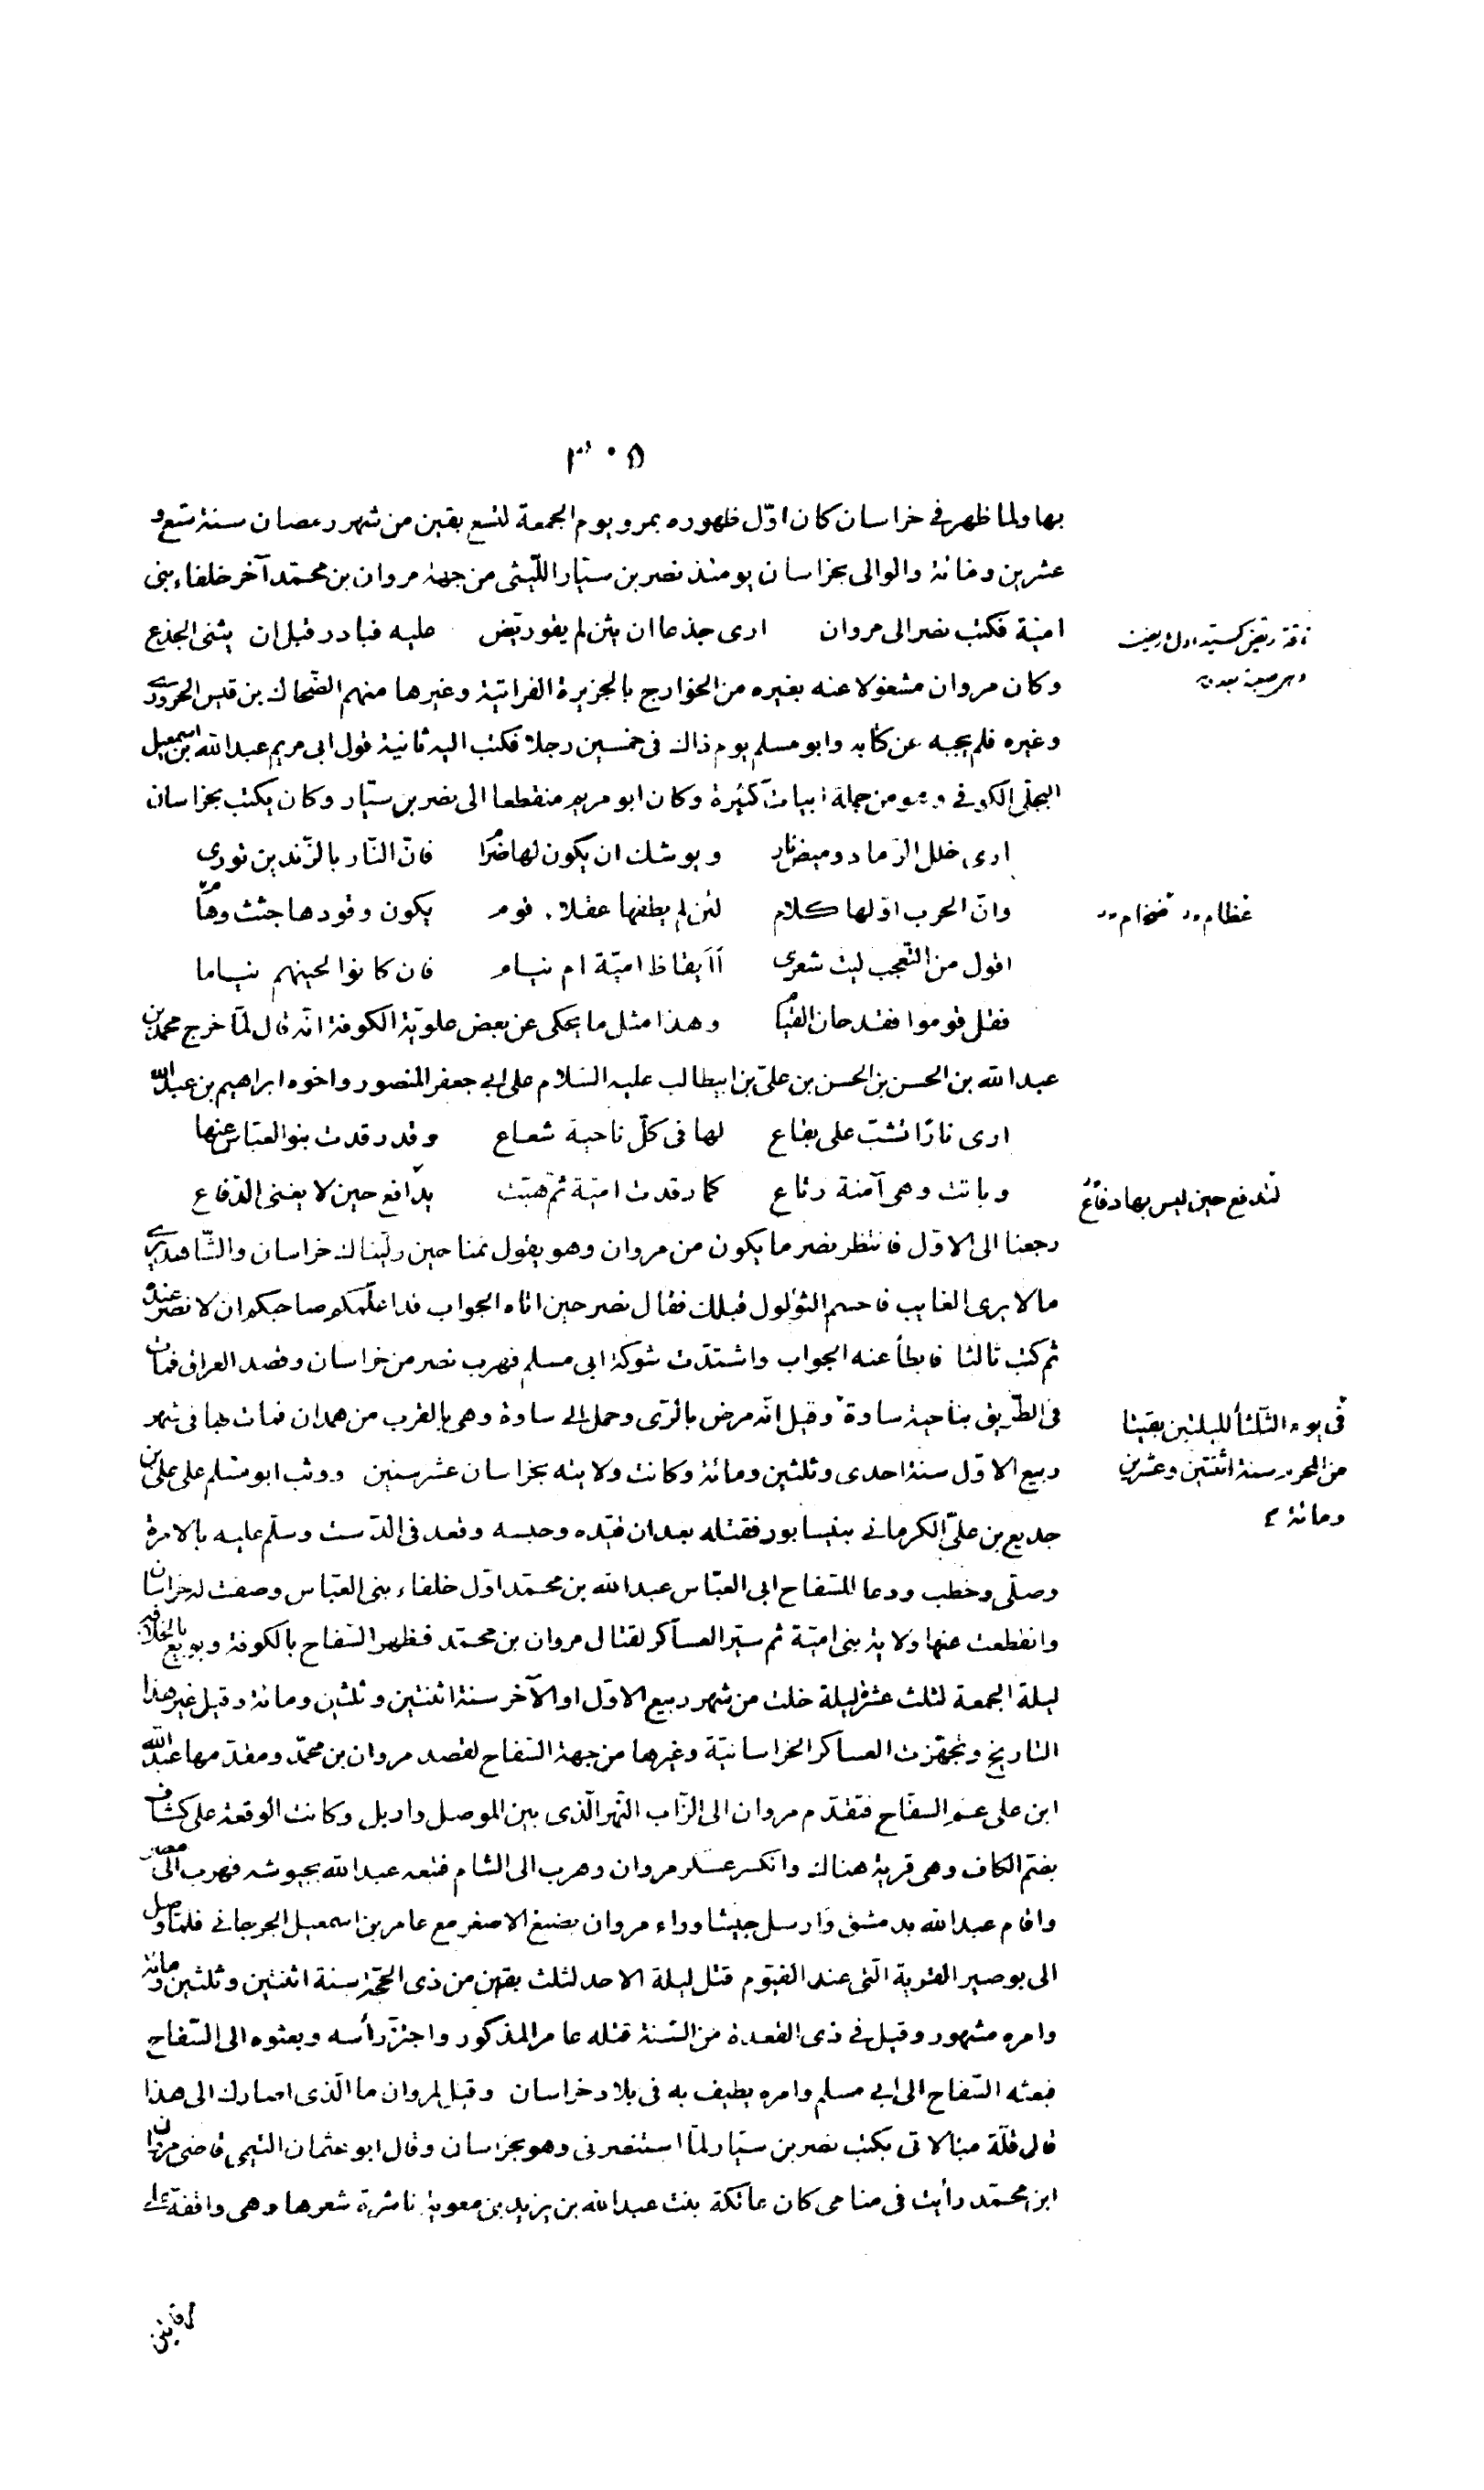 ٣٠٥
بها ولما ظهر في خراسان كان اوّل ظهوره بمرو يوم الجمعة لتسع بقين من شهر رمضان سنة تسع و
عشرين ومائة والوالى بخراسان يومئذ نصر بن سيّار اللّيثى من جهة مروان بن محمّد آخر خلفاء بنى
اميّة فكتب نصر الى مروان ارى جذعا ان يثن لم يقو ريّض عليه فبادر قبل ان يثنى الجذع
وكان مروان مشغولا عنه بغيره من الخوارج بالجزيرة الفراتيّة وغيرها منهم الضّحاك بن قيس الحرورى
وغيره فلم يجبه عن كتابه وابو مسلم يوم ذاك فى خمسين رجلا فكتب اليه ثانية قول ابى مريم عبد الله بن اسمعيل
البجلى الكوفى وهو من جملة ابيات كثيرة وكان ابو مريم منقطعا الى نصر بن سيّار وكان يكتب بخراسان
ارى خلل الرّماد وميض نار ويوشك ان يكون لها ضرام فانّ النّار بالزّندين تورى
وانّ الحرب اوّلها كلام لئن لم يطفها عقلاء قوم يكون وقودها جثث وهام
اقول من التعجب ليت شعرى أأيقاظ اميّة ام نيام فان كانوا لحينهم نياما
فقل قوموا فقد حان القيام وهذا مثل ما يحكى عن بعض علويّة الكوفة انّه قال لمّا خرج محمد بن
عبد الله بن الحسن بن الحسن بن علىّ بن ابيطالب عليه السّلام على ابى جعفر المنصور واخوه ابراهيم بن عبد الله
ارى نارًا تشبّ على يفاع لها فى كلّ ناحية شعاع وقد رقدت بنو العبّاس عنها
وباتت وهى آمنة رتاع كما رقدت اميّة ثمّ هبّت يدافع حين لا يغنى الدّفاع
رجعنا الى الاوّل فانتظر نصر ما يكون من مروان وهو يقول نمنا حين ولّيناك خراسان والشّاهد يرى
ما لا يرى الغايب فاحسم الثؤلول قبلك فقال نصر حين اتاه الجواب قد اعلمكم صاحبكم ان لا نصر عنده
ثم كتب ثالثا فابطأ عنه الجواب واشتدّت شوكة ابى مسلم فهرب نصر من خراسان وقصد العراق فمات
فى الطّريق بناحية ساوة وقيل انّه مرض بالرّى وحمل الى ساوة وهى بالقرب من همدان فمات بها فى شهر
ربيع الاوّل سنة احدى وثلثين ومائة وكانت ولايته بخراسان عشر سنين ووثب ابو مسلم على على بن
جديع بن علىّ الكرمانى بنيسابور فقتله بعد ان قيّده وحبسه وقعد فى الدّست وسلّم عليه بالامرة
وصلّى وخطب ودعا للسّفاح ابى العبّاس عبد الله بن محمّد اوّل خلفاء بنى العبّاس وصفت له خراسان
وانقطعت عنها ولاية بنى اميّة ثم سيّر العساكر لقتال مروان بن محمّد فظهر السّفاح بالكوفة وبويع بالخلافة
ليلة الجمعة لثلث عشرة ليلة خلت من شهر ربيع الاوّل او الآخر سنة اثنتين وثلثين ومائة وقيل غير هذا
التاريخ وتجهّزت العساكر الخراسانيّة وغيرها من جهة السّفاح لقصد مروان بن محمّد ومقدّمها عبد الله
ابن على عم السفّاح فتقدّم مروان الى الزّاب النّهر الّذى بين الموصل واربل وكانت الوقعة على كشاف
بضمّ الكاف وهى قرية هناك وانكسر عسكر مروان وهرب الى الشام فتبعه عبد الله بجيوشه فهرب الى مصر
واقام عبد الله بدمشق وارسل جيشا وراء مروان بصنيع الاصفر مع عامر بن اسمعيل الجرجانى فلمّا وصل
الى بوصير القرية الّتى عند الفيّوم قتل ليلة الاحد لثلث بقين من ذى الحجّة سنة اثنتين وثلثين ومائة
وامره مشهور وقيل فى ذى القعدة من السّنة قتله عامر المذكور واجتزّ رأسه وبعثوه الى السّفاح
فبعثه السّفاح الى ابى مسلم وامره يطيف به فى بلاد خراسان وقيل لمروان ما الّذى اصارك الى هذا
قال قلّة مبالاتى بكتب نصر بن سيّار لمّا استنصرنى وهو بخراسان وقال ابو عثمان التيمى قاضى مروان
ابن محمّد رأيت فى منامى كان عاتكة بنت عبد الله بن يزيد بن معوية ناشرة شعرها وهى واقفة على
ناقة ريّض كسيّد اول ما ريضت
وهى صعبة بعد
عظام ضخام
لتدفع حين ليس بها دفاع
فى يوم الثّلثا لليلتين بقيتا
من المحرم سنة اثنتين وعشرين
ومائة